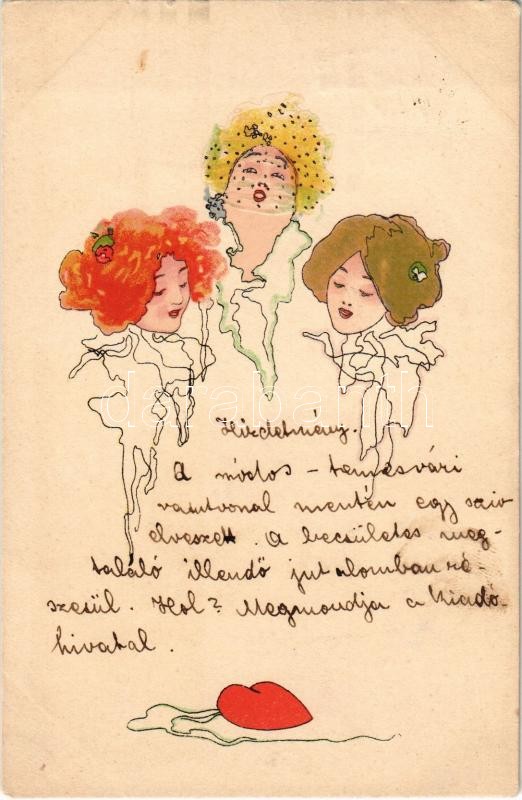 darabanth
Hirdetmény.
A módos - temesvári
vasutvonal mentén egy sziv
elveszett. A becsületes meg-
találó illendő jutalomban ré-
szesül. Hol? Megmondja a Kiadó-
hivatal.